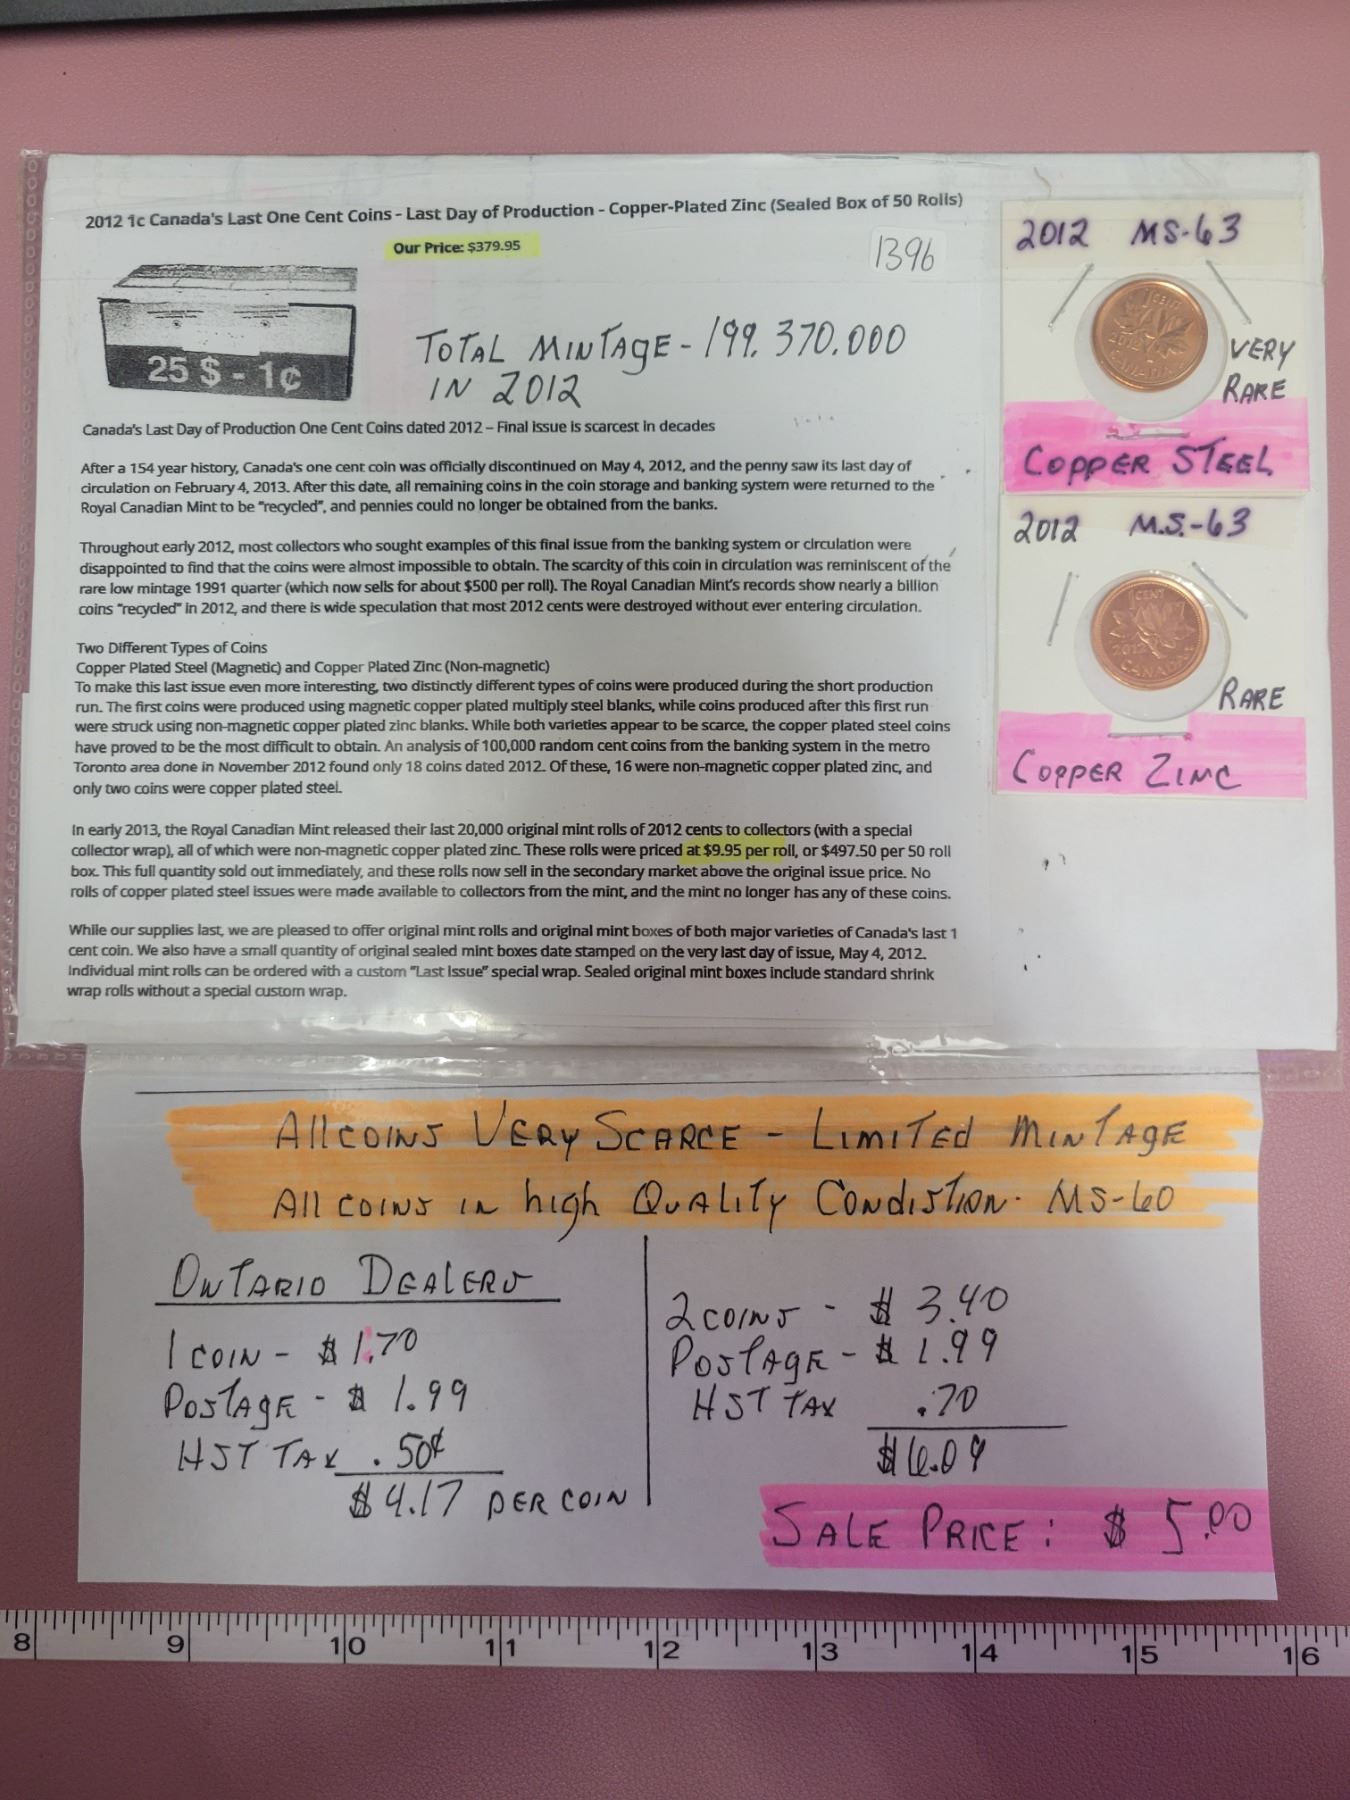 2012 1c Canada's Last One Cent Coins - Last Day of Production - Copper-Plated Zinc (Sealed Box of 50 Rolls)
Our Price: $379.95
1396
25 $ - 1¢
TOTAL MINTAGE - 199.370.000
IN 2012
Canada's Last Day of Production One Cent Coins dated 2012 – Final issue is scarcest in decades
After a 154 year history, Canada's one cent coin was officially discontinued on May 4, 2012, and the penny saw its last day of
circulation on February 4, 2013. After this date, all remaining coins in the coin storage and banking system were returned to the
Royal Canadian Mint to be "recycled", and pennies could no longer be obtained from the banks.
Throughout early 2012, most collectors who sought examples of this final issue from the banking system or circulation were
disappointed to find that the coins were almost impossible to obtain. The scarcity of this coin in circulation was reminiscent of the
rare low mintage 1991 quarter (which now sells for about $500 per roll). The Royal Canadian Mint's records show nearly a billion
coins "recycled" in 2012, and there is wide speculation that most 2012 cents were destroyed without ever entering circulation.
Two Different Types of Coins
Copper Plated Steel (Magnetic) and Copper Plated Zinc (Non-magnetic)
To make this last issue even more interesting, two distinctly different types of coins were produced during the short production
run. The first coins were produced using magnetic copper plated multiply steel blanks, while coins produced after this first run
were struck using non-magnetic copper plated zinc blanks. While both varieties appear to be scarce, the copper plated steel coins
have proved to be the most difficult to obtain. An analysis of 100,000 random cent coins from the banking system in the metro
Toronto area done in November 2012 found only 18 coins dated 2012. Of these, 16 were non-magnetic copper plated zinc, and
only two coins were copper plated steel.
In early 2013, the Royal Canadian Mint released their last 20,000 original mint rolls of 2012 cents to collectors (with a special
collector wrap), all of which were non-magnetic copper plated zinc. These rolls were priced at $9.95 per roll, or $497.50 per 50 roll
box. This full quantity sold out immediately, and these rolls now sell in the secondary market above the original issue price. No
rolls of copper plated steel issues were made available to collectors from the mint, and the mint no longer has any of these coins.
While our supplies last, we are pleased to offer original mint rolls and original mint boxes of both major varieties of Canada's last 1
cent coin. We also have a small quantity of original sealed mint boxes date stamped on the very last day of issue, May 4, 2012.
Individual mint rolls can be ordered with a custom "Last Issue" special wrap. Sealed original mint boxes include standard shrink
wrap rolls without a special custom wrap.
2012 MS-63
1 CENT
2012
CANADA
VERY
RARE
COPPER STEEL
2012 M.S.-63
1 CENT
2012
CANADA
RARE
COPPER ZINC
All COINS VERY SCARCE - LIMITED MINTAGE
All COINS IN high QUALITY CONDISTION. MS-60
ONTARIO DEALERS
1 COIN - $ 1.70
POSTAGE - $ 1.99
HST TAX .50¢
$ 4.17 PER COIN
2 COINS - $ 3.40
POSTAGE - $ 1.99
HST TAX .70
$ 6.09
SALE PRICE: $ 5.00
8 9 10 11 12 13 14 15 16